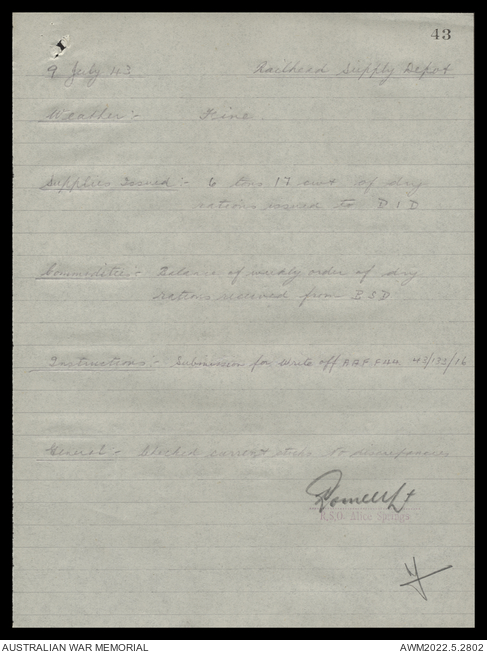 43
9 July 43 Railhead Supply Depot
Weather:- Fine.
Supplies Issued:- 6 tons 17 cwt of dry
rations issued to D I D
Commodities:- Balance of weekly order of dry
rations received from B S D
Instructions:- Submission for write off 43/132/16
General:- Checked current stocks No discrepancies
R.S.O. Alice Springs
AUSTRALIAN WAR MEMORIAL AWM2022.5.2802